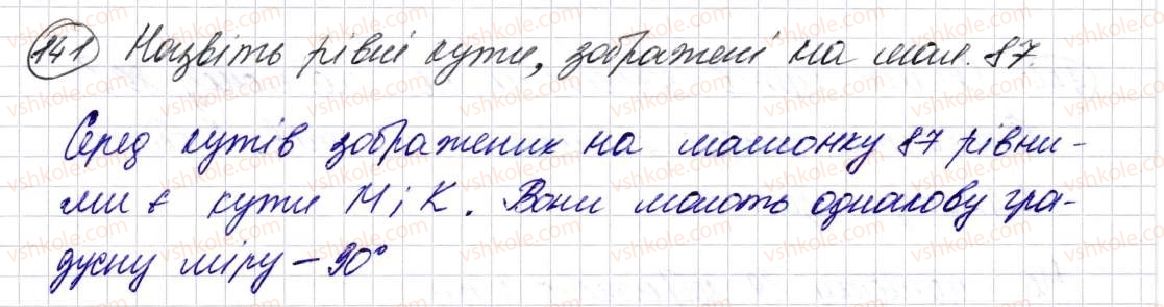 141 Назвіть рівні кути, зображені на мал. 87.
Серед кутів зображених на малюнку 87 рівни-
ми є кути М і К. Вони мають однакову гра-
дусну міру – 90°